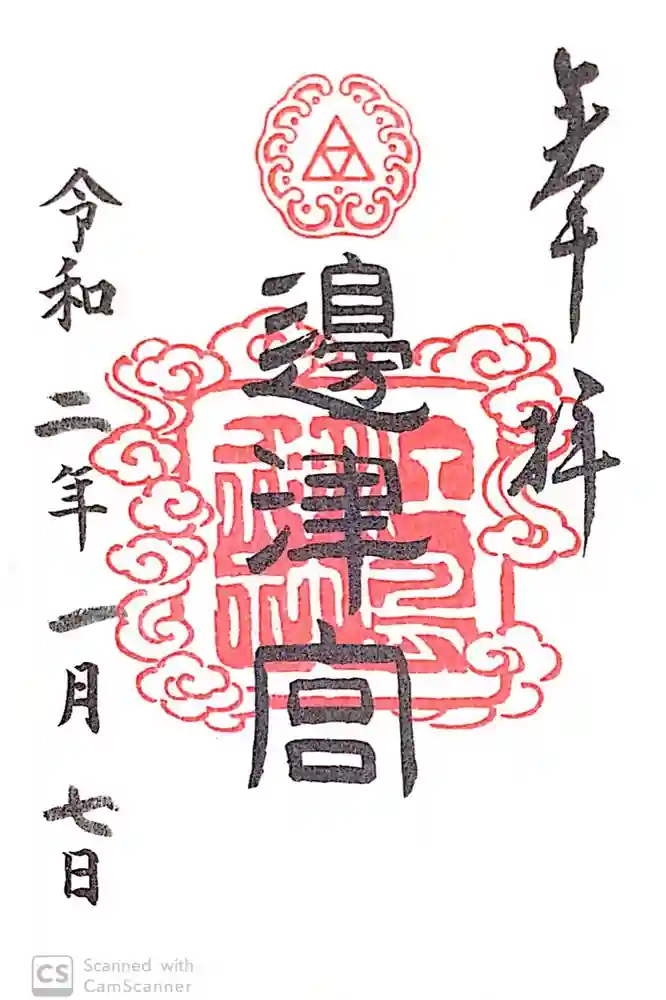 奉拝
邊津宮
江島神社
令和二年一月七日
CS Scanned with
CamScanner